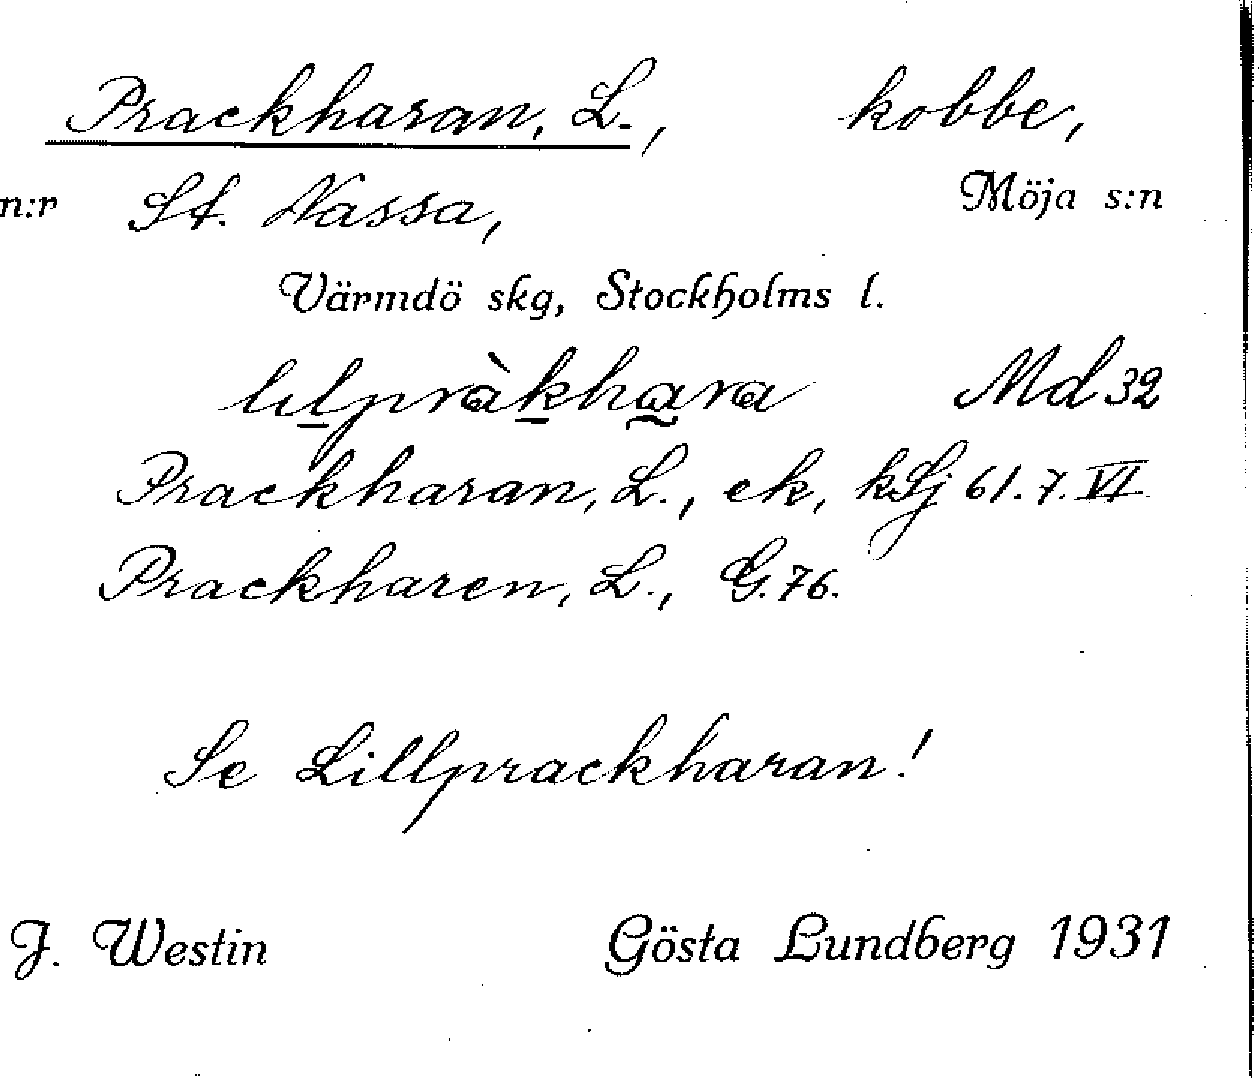 Prackharan, L., kobbe,
n:r St. Nassa, Möja s:n
Värmdö skg, Stockholms l.
lılpràkhara Md 32
Prackharan, L., ek, kSj 61.7.VI
Prackharen, L., G.76.
Se Lillprackharan!
J. Westin Gösta Lundberg 1931